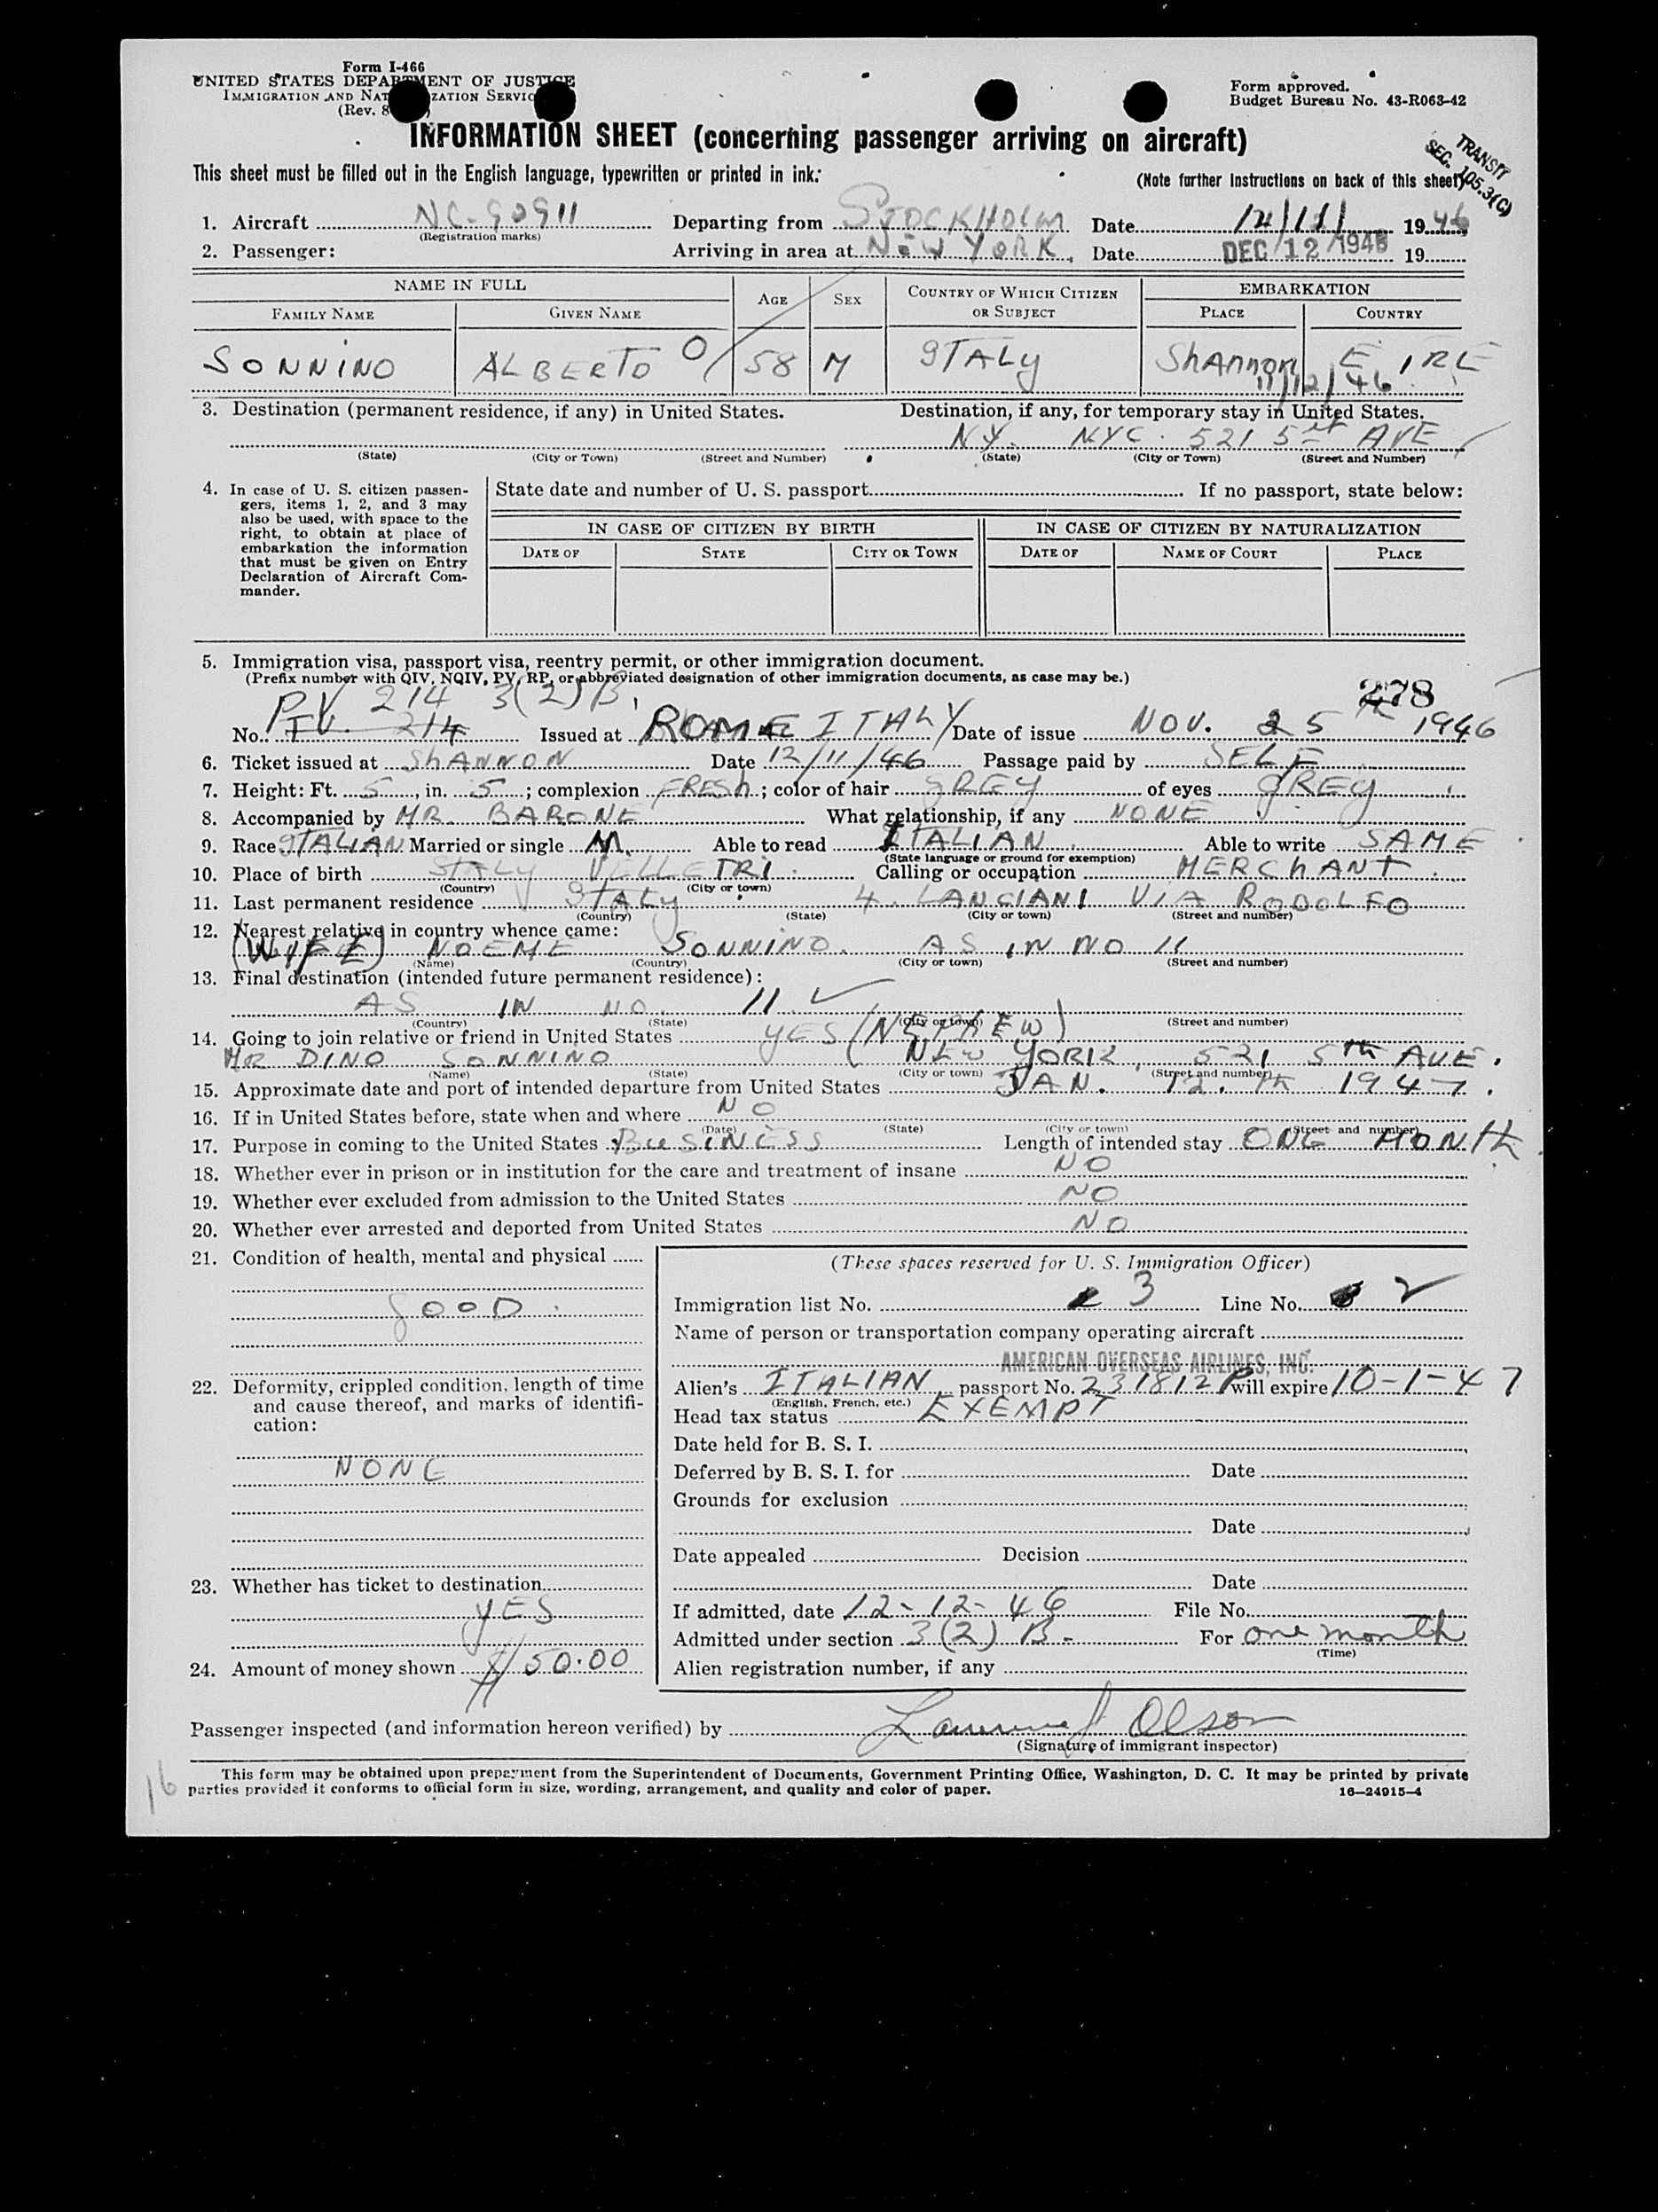 Form I-466
UNITED STATES DEPARTMENT OF JUSTICE
IMMIGRATION AND NAT ZATION SERVIC
(Rev. 8 )
Form approved.
Budget Bureau No. 43-R063-42
INFORMATION SHEET (concerning passenger arriving on aircraft)
TRANSIT
SEC. 105.3(C)
This sheet must be filled out in the English language, typewritten or printed in ink.
(Note further instructions on back of this sheet)
1. Aircraft NC-90911 Departing from STOCKHOLM Date 12/11/ 1946
(Registration marks)
2. Passenger: Arriving in area at NEW YORK, Date DEC 12 1946 19
NAME IN FULL AGE SEX COUNTRY OF WHICH CITIZEN OR SUBJECT EMBARKATION
FAMILY NAME GIVEN NAME PLACE COUNTRY
SONNINO ALBERTO 0/ 58 M ITALY Shannon EIRE
11/12/46
3. Destination (permanent residence, if any) in United States. Destination, if any, for temporary stay in United States.
NY. NYC. 521 5th AVE
(State) (City or Town) (Street and Number) (State) (City or Town) (Street and Number)
4. In case of U. S. citizen passengers, items 1, 2, and 3 may also be used, with space to the right, to obtain at place of embarkation the information that must be given on Entry Declaration of Aircraft Commander.
State date and number of U. S. passport If no passport, state below:
IN CASE OF CITIZEN BY BIRTH IN CASE OF CITIZEN BY NATURALIZATION
DATE OF STATE CITY OR TOWN DATE OF NAME OF COURT PLACE
5. Immigration visa, passport visa, reentry permit, or other immigration document.
(Prefix number with QIV, NQIV, PV, RP, or abbreviated designation of other immigration documents, as case may be.)
278
PV 214 3(2)B.
No. 214 Issued at ROME ITALY Date of issue NOV. 25th 1946
6. Ticket issued at ShANNON Date 12/11/46 Passage paid by SELF
7. Height: Ft. 5, in. 5; complexion FRESh; color of hair GREY of eyes GREY
8. Accompanied by MR. BARONE What relationship, if any NONE
9. Race ITALIAN Married or single M. Able to read ITALIAN Able to write SAME
(State language or ground for exemption)
10. Place of birth ITALY VELLETRI Calling or occupation MERChANT
(Country) (City or town)
11. Last permanent residence ITALY 4. LANCIANI VIA RODOLFO
(Country) (State) (City or town) (Street and number)
12. Nearest relative in country whence came:
(WIFE) NOEME SONNINO. AS IN NO 11
(Name) (Country) (City or town) (Street and number)
13. Final destination (intended future permanent residence):
AS IN NO. 11
(Country) (State) (City or town) (Street and number)
14. Going to join relative or friend in United States YES (NEPHEW)
MR DINO SONNINO NEW YORK, 521 5th AVE.
(Name) (State) (City or town) (Street and number)
15. Approximate date and port of intended departure from United States JAN. 12.th 1947.
16. If in United States before, state when and where NO
(Date) (State) (City or town) (Street and number)
17. Purpose in coming to the United States BUSINESS Length of intended stay ONE MONTH.
18. Whether ever in prison or in institution for the care and treatment of insane NO
19. Whether ever excluded from admission to the United States NO
20. Whether ever arrested and deported from United States NO
21. Condition of health, mental and physical
GOOD.
22. Deformity, crippled condition, length of time and cause thereof, and marks of identification:
NONE
23. Whether has ticket to destination
YES
24. Amount of money shown $150.00
(These spaces reserved for U. S. Immigration Officer)
Immigration list No. 3 Line No. 2
Name of person or transportation company operating aircraft
AMERICAN OVERSEAS AIRLINES, INC.
Alien's ITALIAN passport No. 231812P will expire 10-1-47
(English, French, etc.)
Head tax status EXEMPT
Date held for B. S. I.
Deferred by B. S. I. for Date
Grounds for exclusion
Date
Date appealed Decision
Date
If admitted, date 12-12-46 File No.
Admitted under section 3(2) B- For one month
(Time)
Alien registration number, if any
Passenger inspected (and information hereon verified) by Olson
(Signature of immigrant inspector)
16
This form may be obtained upon prepayment from the Superintendent of Documents, Government Printing Office, Washington, D. C. It may be printed by private
parties provided it conforms to official form in size, wording, arrangement, and quality and color of paper. 16—24915-4